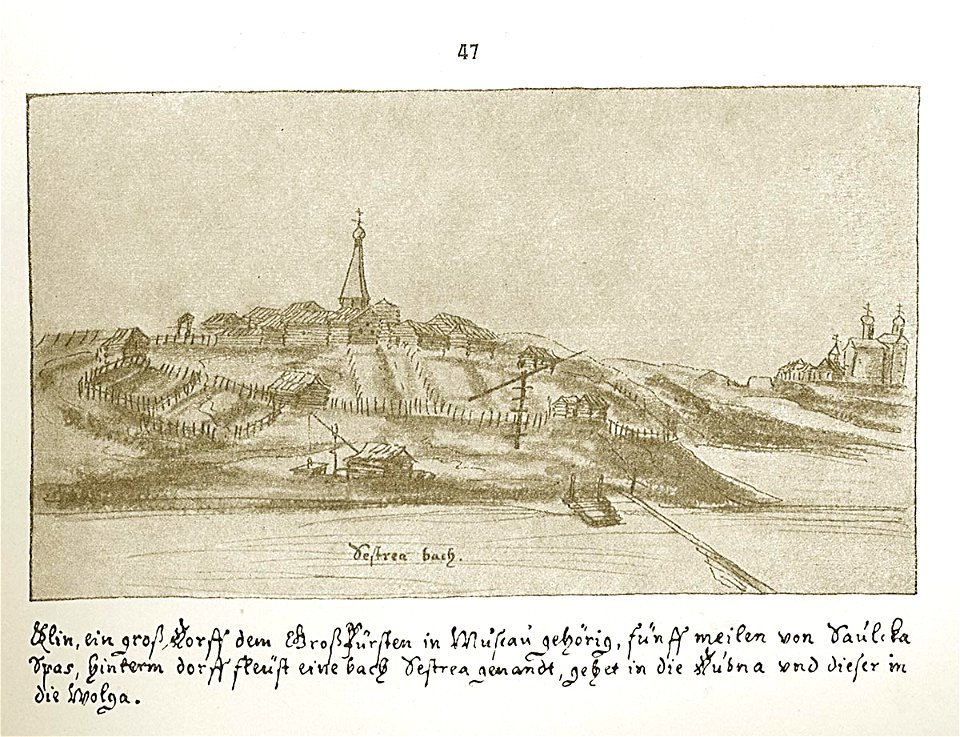 47
Sestrea bach.
Klin, ein groß Dorff dem GroßFürsten in Muscau gehörig, fünff meilen von Saulcka
Spas, hinterm dorff fleüst eine bach Sestrea genandt, gehet in die Dubna vnd dieser in
die Wolga.